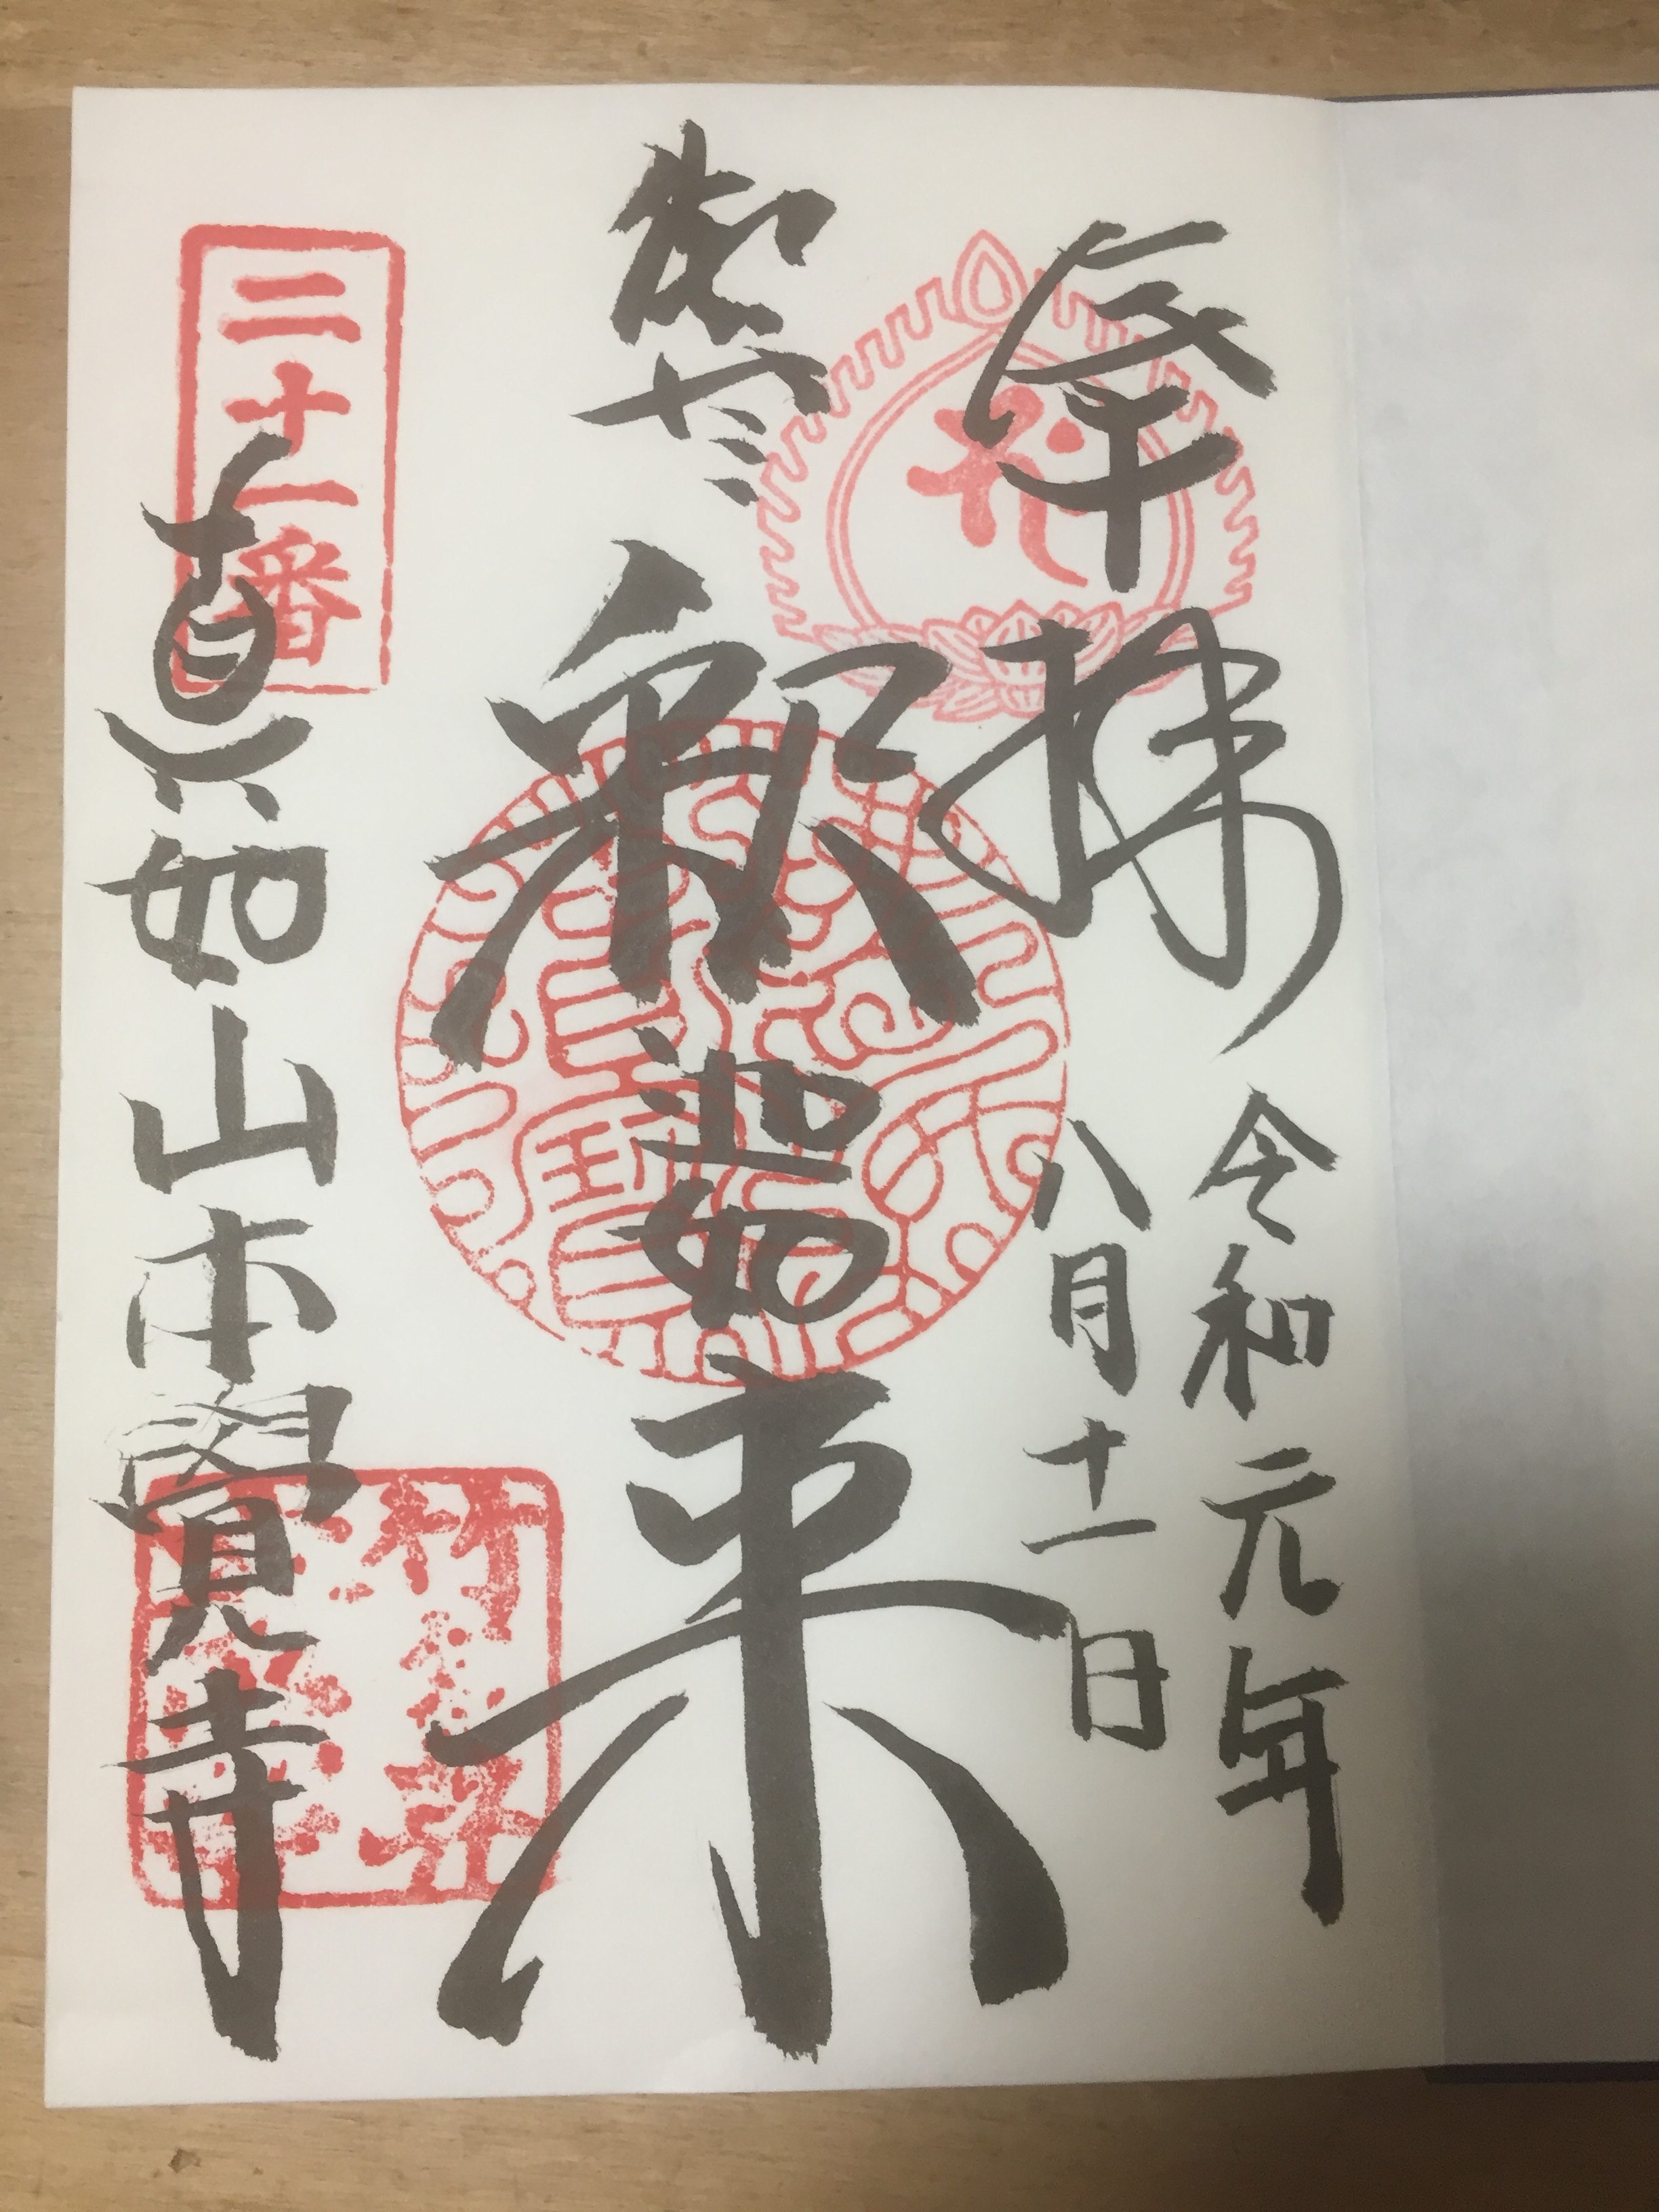 奉拝 令和元年
八月十一日
釈迦如来
二十一番
真如山本覺寺